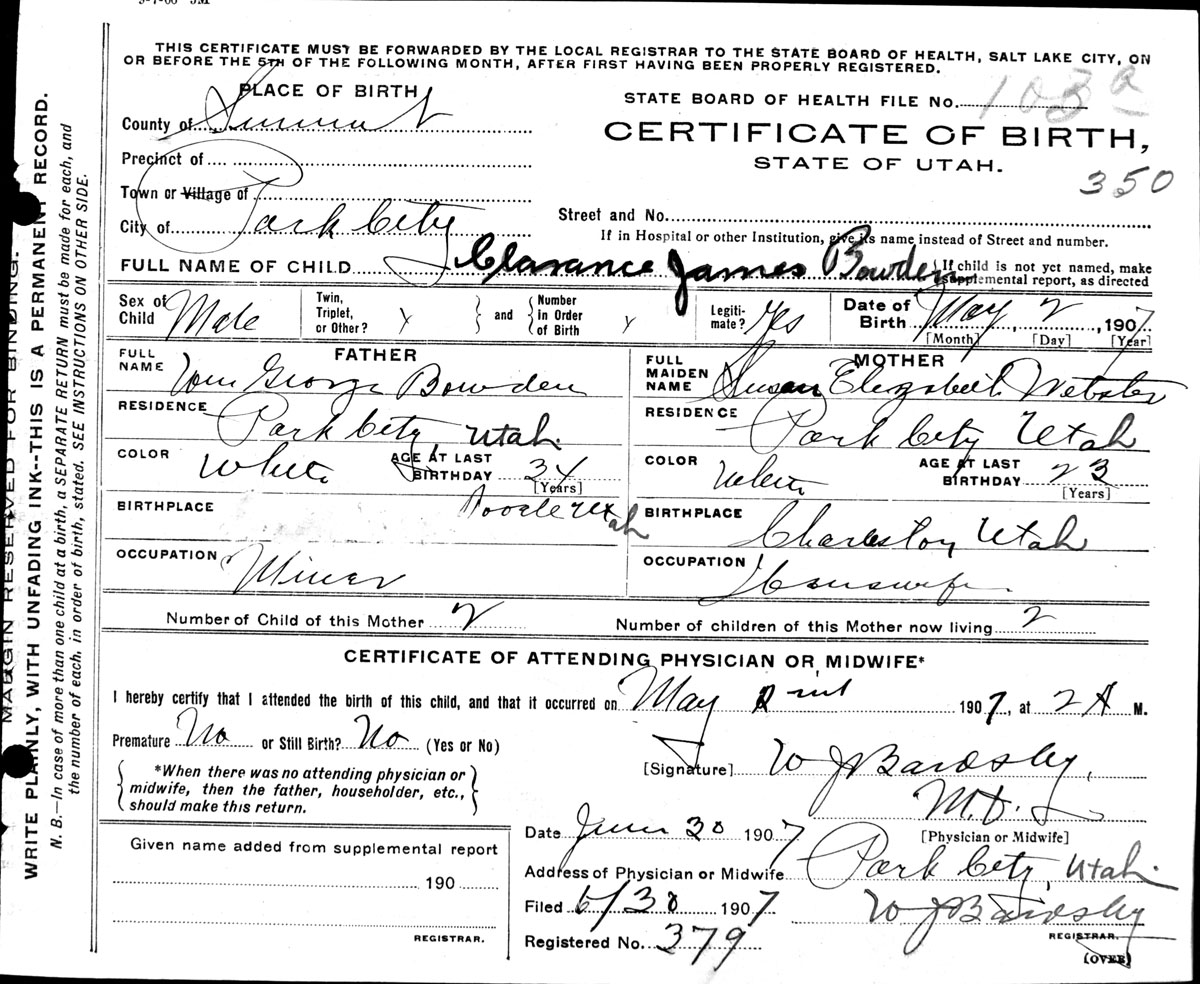 THIS CERTIFICATE MUST BE FORWARDED BY THE LOCAL REGISTRAR TO THE STATE BOARD OF HEALTH, SALT LAKE CITY, ON
OR BEFORE THE 5TH OF THE FOLLOWING MONTH, AFTER FIRST HAVING BEEN PROPERLY REGISTERED.
PLACE OF BIRTH
STATE BOARD OF HEALTH FILE No. 103 a
County of Summit
CERTIFICATE OF BIRTH,
Precinct of
STATE OF UTAH.
350
Town or Village of
City of Park City
Street and No.
If in Hospital or other Institution, give its name instead of Street and number.
FULL NAME OF CHILD Clarance James Bowden { If child is not yet named, make
supplemental report, as directed
Sex of Child Male Twin, Triplet, or Other? Y } and { Number in Order of Birth Y Legiti-mate? Yes Date of Birth May 2, 1907
[Month] [Day] [Year]
FATHER MOTHER
FULL NAME Wm George Bowden FULL MAIDEN NAME Susan Elizabeth Webster
RESIDENCE Park City, Utah RESIDENCE Park City Utah
COLOR White AGE AT LAST BIRTHDAY 34 [Years] COLOR White AGE AT LAST BIRTHDAY 23 [Years]
BIRTHPLACE Tooele Utah BIRTHPLACE Charleston Utah
OCCUPATION Miner OCCUPATION Housewife
Number of Child of this Mother 2 Number of children of this Mother now living 2
CERTIFICATE OF ATTENDING PHYSICIAN OR MIDWIFE*
I hereby certify that I attended the birth of this child, and that it occurred on May 1907, at 2 A M.
Premature No or Still Birth? No (Yes or No)
[Signature] W J Bardsley,
M.D.
[Physician or Midwife]
{ *When there was no attending physician or
midwife, then the father, householder, etc.,
should make this return. }
Date June 30 1907
Given name added from supplemental report
Address of Physician or Midwife Park City, Utah
190
Filed 6/30 1907 W J Bardsley
REGISTRAR.
REGISTRAR.
Registered No. 379
(OVER)
MARGIN RESERVED FOR BINDING.
WRITE PLAINLY, WITH UNFADING INK--THIS IS A PERMANENT RECORD.
N. B.—In case of more than one child at a birth, a SEPARATE RETURN must be made for each, and
the number of each, in order of birth, stated. SEE INSTRUCTIONS ON OTHER SIDE.